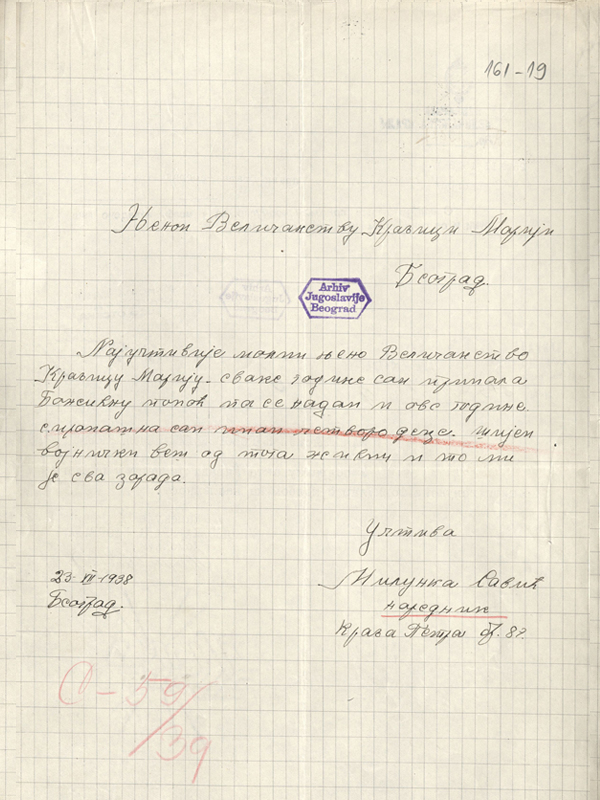 161-19
Њеном Величанству Краљици Марији
Београд.
Arhiv
Jugoslavije
Beograd
Најучтивије молим њено Величанство
Краљицу Марију. сваке године сам примала
Божићну помоћ па се надам и ове године
сиромашна сам имам четворо деце. шијем
војнички веш од тога живим и то ми
је сва зарада.
Учтива
23-XII-1938
Београд.
Милунка Савић
наредник
Краља Петра бр. 87.
С-59/39